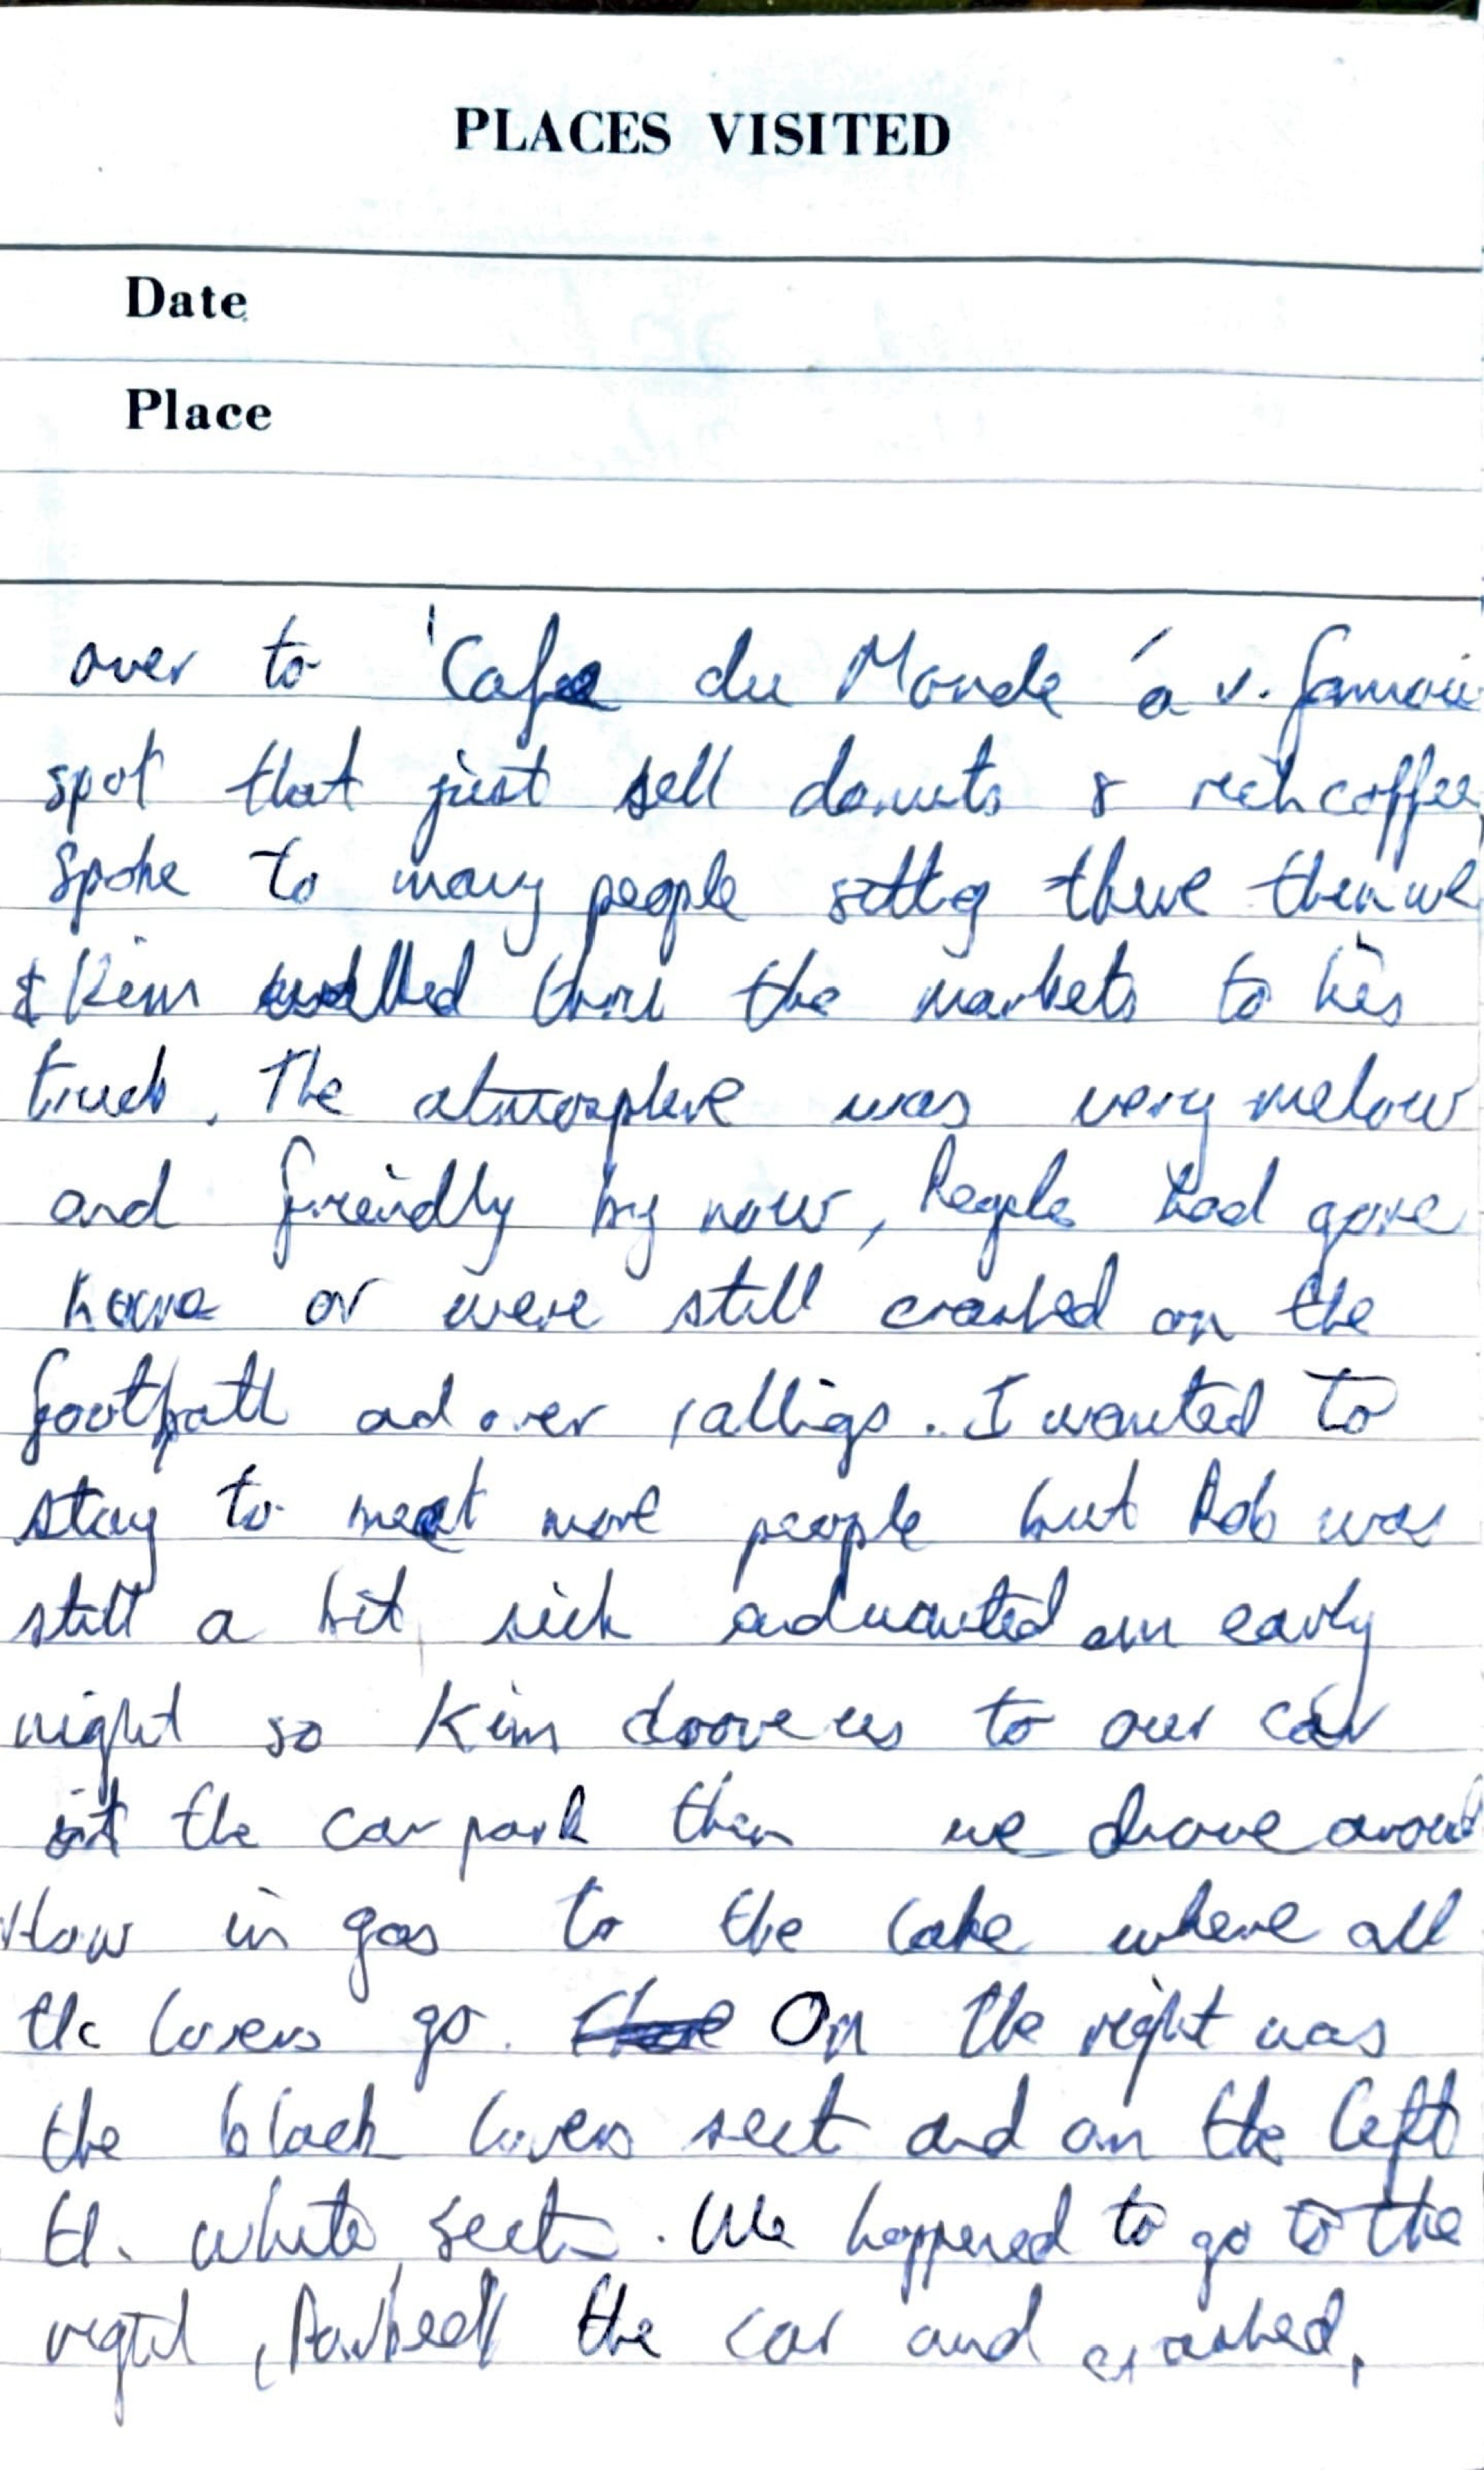 PLACES VISITED
Date
Place
over to 'Cafe du Monde' a v. famous
spot that just sell donuts & rich coffee
Spoke to many people sittg there then we
& Kim walked thru the markets to his
truck. The atmosphere was very melow
and freindly by now, People had gone
home or were still crashed on the
footpath ad over railigs. I wanted to
stay to meet more people but Rob was
still a bit sick and wanted an early
night so Kim drove us to our car
at the car park then we drove around
low in gas to the lake where all
the lovers go. On the right was
the black lovers sect and on the left
th. white sect. We happened to go to the
right, Parked the car and crashed,